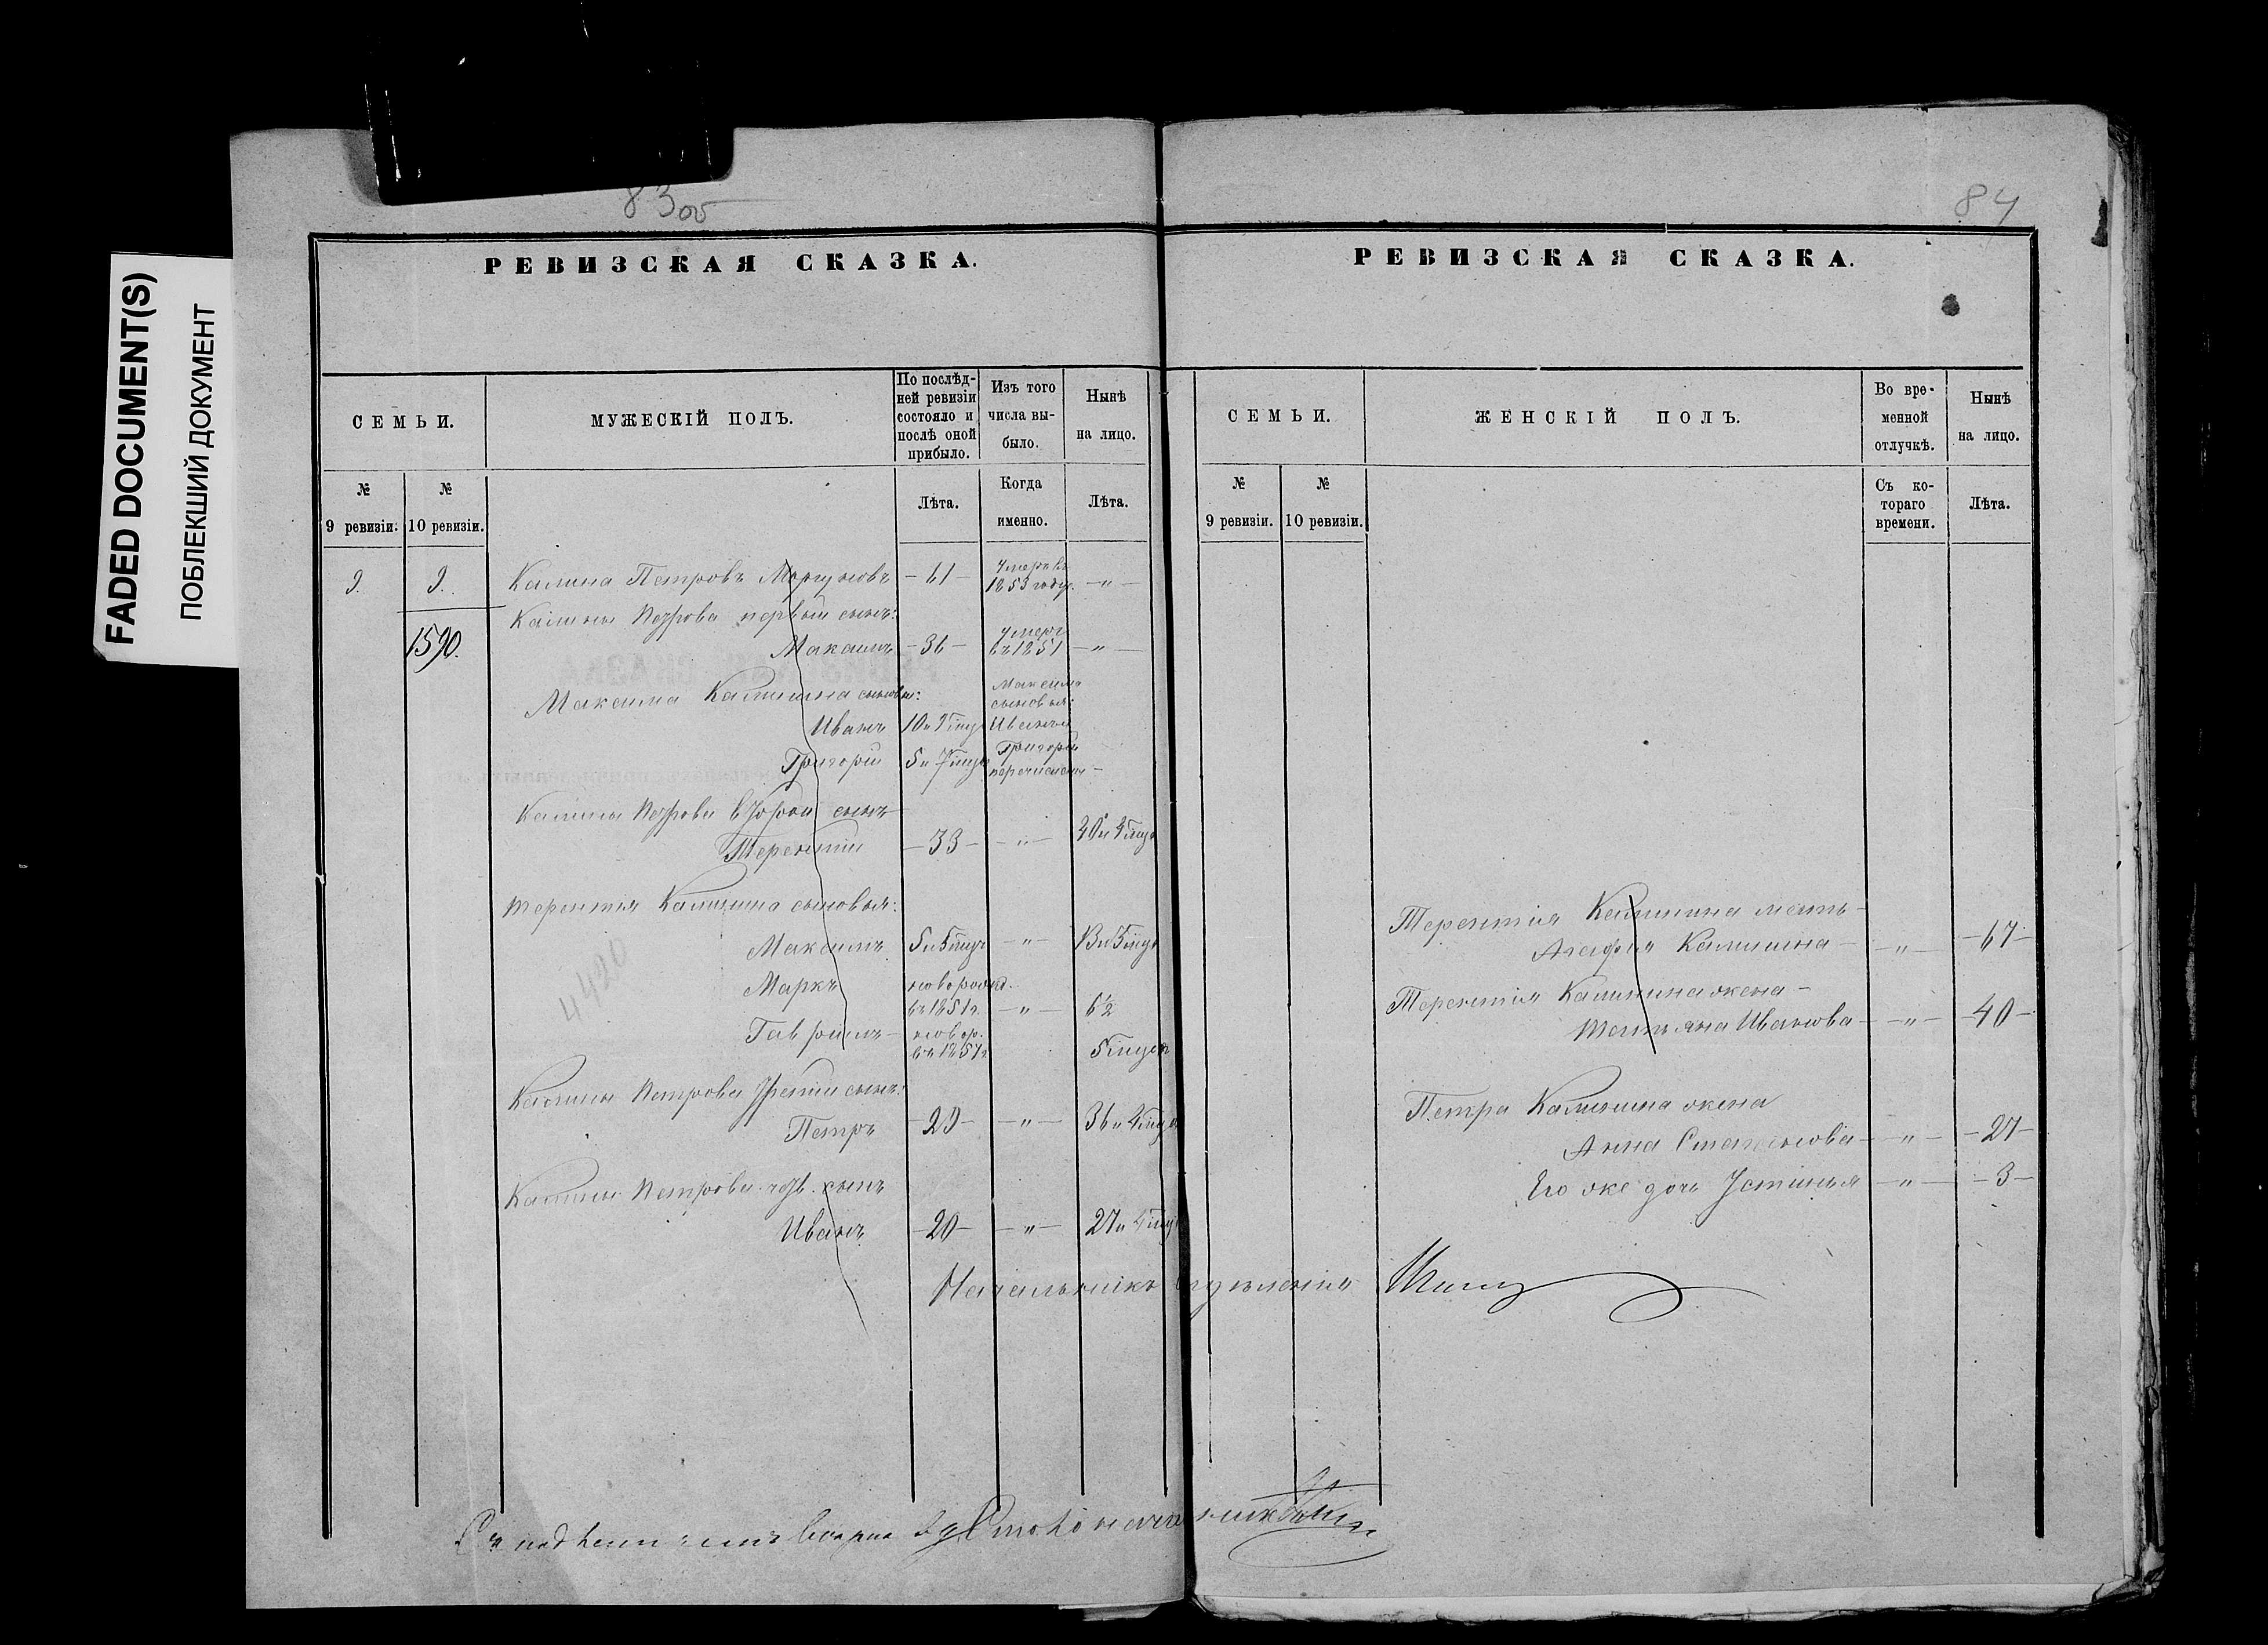 FADED DOCUMENT(S)
ПОБЛЕКШИЙ ДОКУМЕНТ
83 об
РЕВИЗСКАЯ СКАЗКА.
СЕМЬИ.
МУЖЕСКІЙ ПОЛЪ.
По послѣд-
ней ревизіи
состояло и
послѣ оной
прибыло.
Изъ того
числа вы-
было.
Нынѣ
на лицо.
№
9 ревизіи.
№
10 ревизіи.
Лѣта.
Когда
именно.
Лѣта.
9. 9. Калина Петровъ Моргуновъ - 61 - умеръ въ 1853 году. - " -
1590.
Калины Петрова первый сынъ:
Максимъ - 36 - умеръ въ 1851 - " -
Максима Калинина сыновья:
Иванъ 10 и 9 мцъ
Григорій 5 и 7 мцъ
Максима
сыновья:
Иванъ и
Григорій
перечислены -
Калины Петрова второй сынъ
Терентій - 33 - - " - 40 и 4 мцъ
Терентья Калинина сыновья:
Максимъ 5 и 5 мцъ - " - 13 и 5 мцъ
Маркъ новорожд. въ 1851 г. - " - 6½
Гаврилъ - новор. въ 1857 г. 5 мцевъ
4420
Калины Петрова третій сынъ:
Петръ - 29 - - " - 36 и 4 мцъ
Калины Петрова четв. сынъ
Иванъ - 20 - - " - 27 и 4 мцъ
Начальникъ отдѣленія
Съ подлиннымъ вѣрно
84
РЕВИЗСКАЯ СКАЗКА.
СЕМЬИ.
ЖЕНСКІЙ ПОЛЪ.
Во вре-
менной
отлучкѣ.
Нынѣ
на лицо.
№
9 ревизіи.
№
10 ревизіи.
Съ ко-
тораго
времени.
Лѣта.
Терентія Калинина мать -
Агафія Калинина - - " - - 67 -
Терентія Калинина жена -
Татьяна Иванова - - " - 40 -
Петра Калинина жена
Анна Степанова - - " - - 27 -
Его же дочь Устинья - " - - 3 -